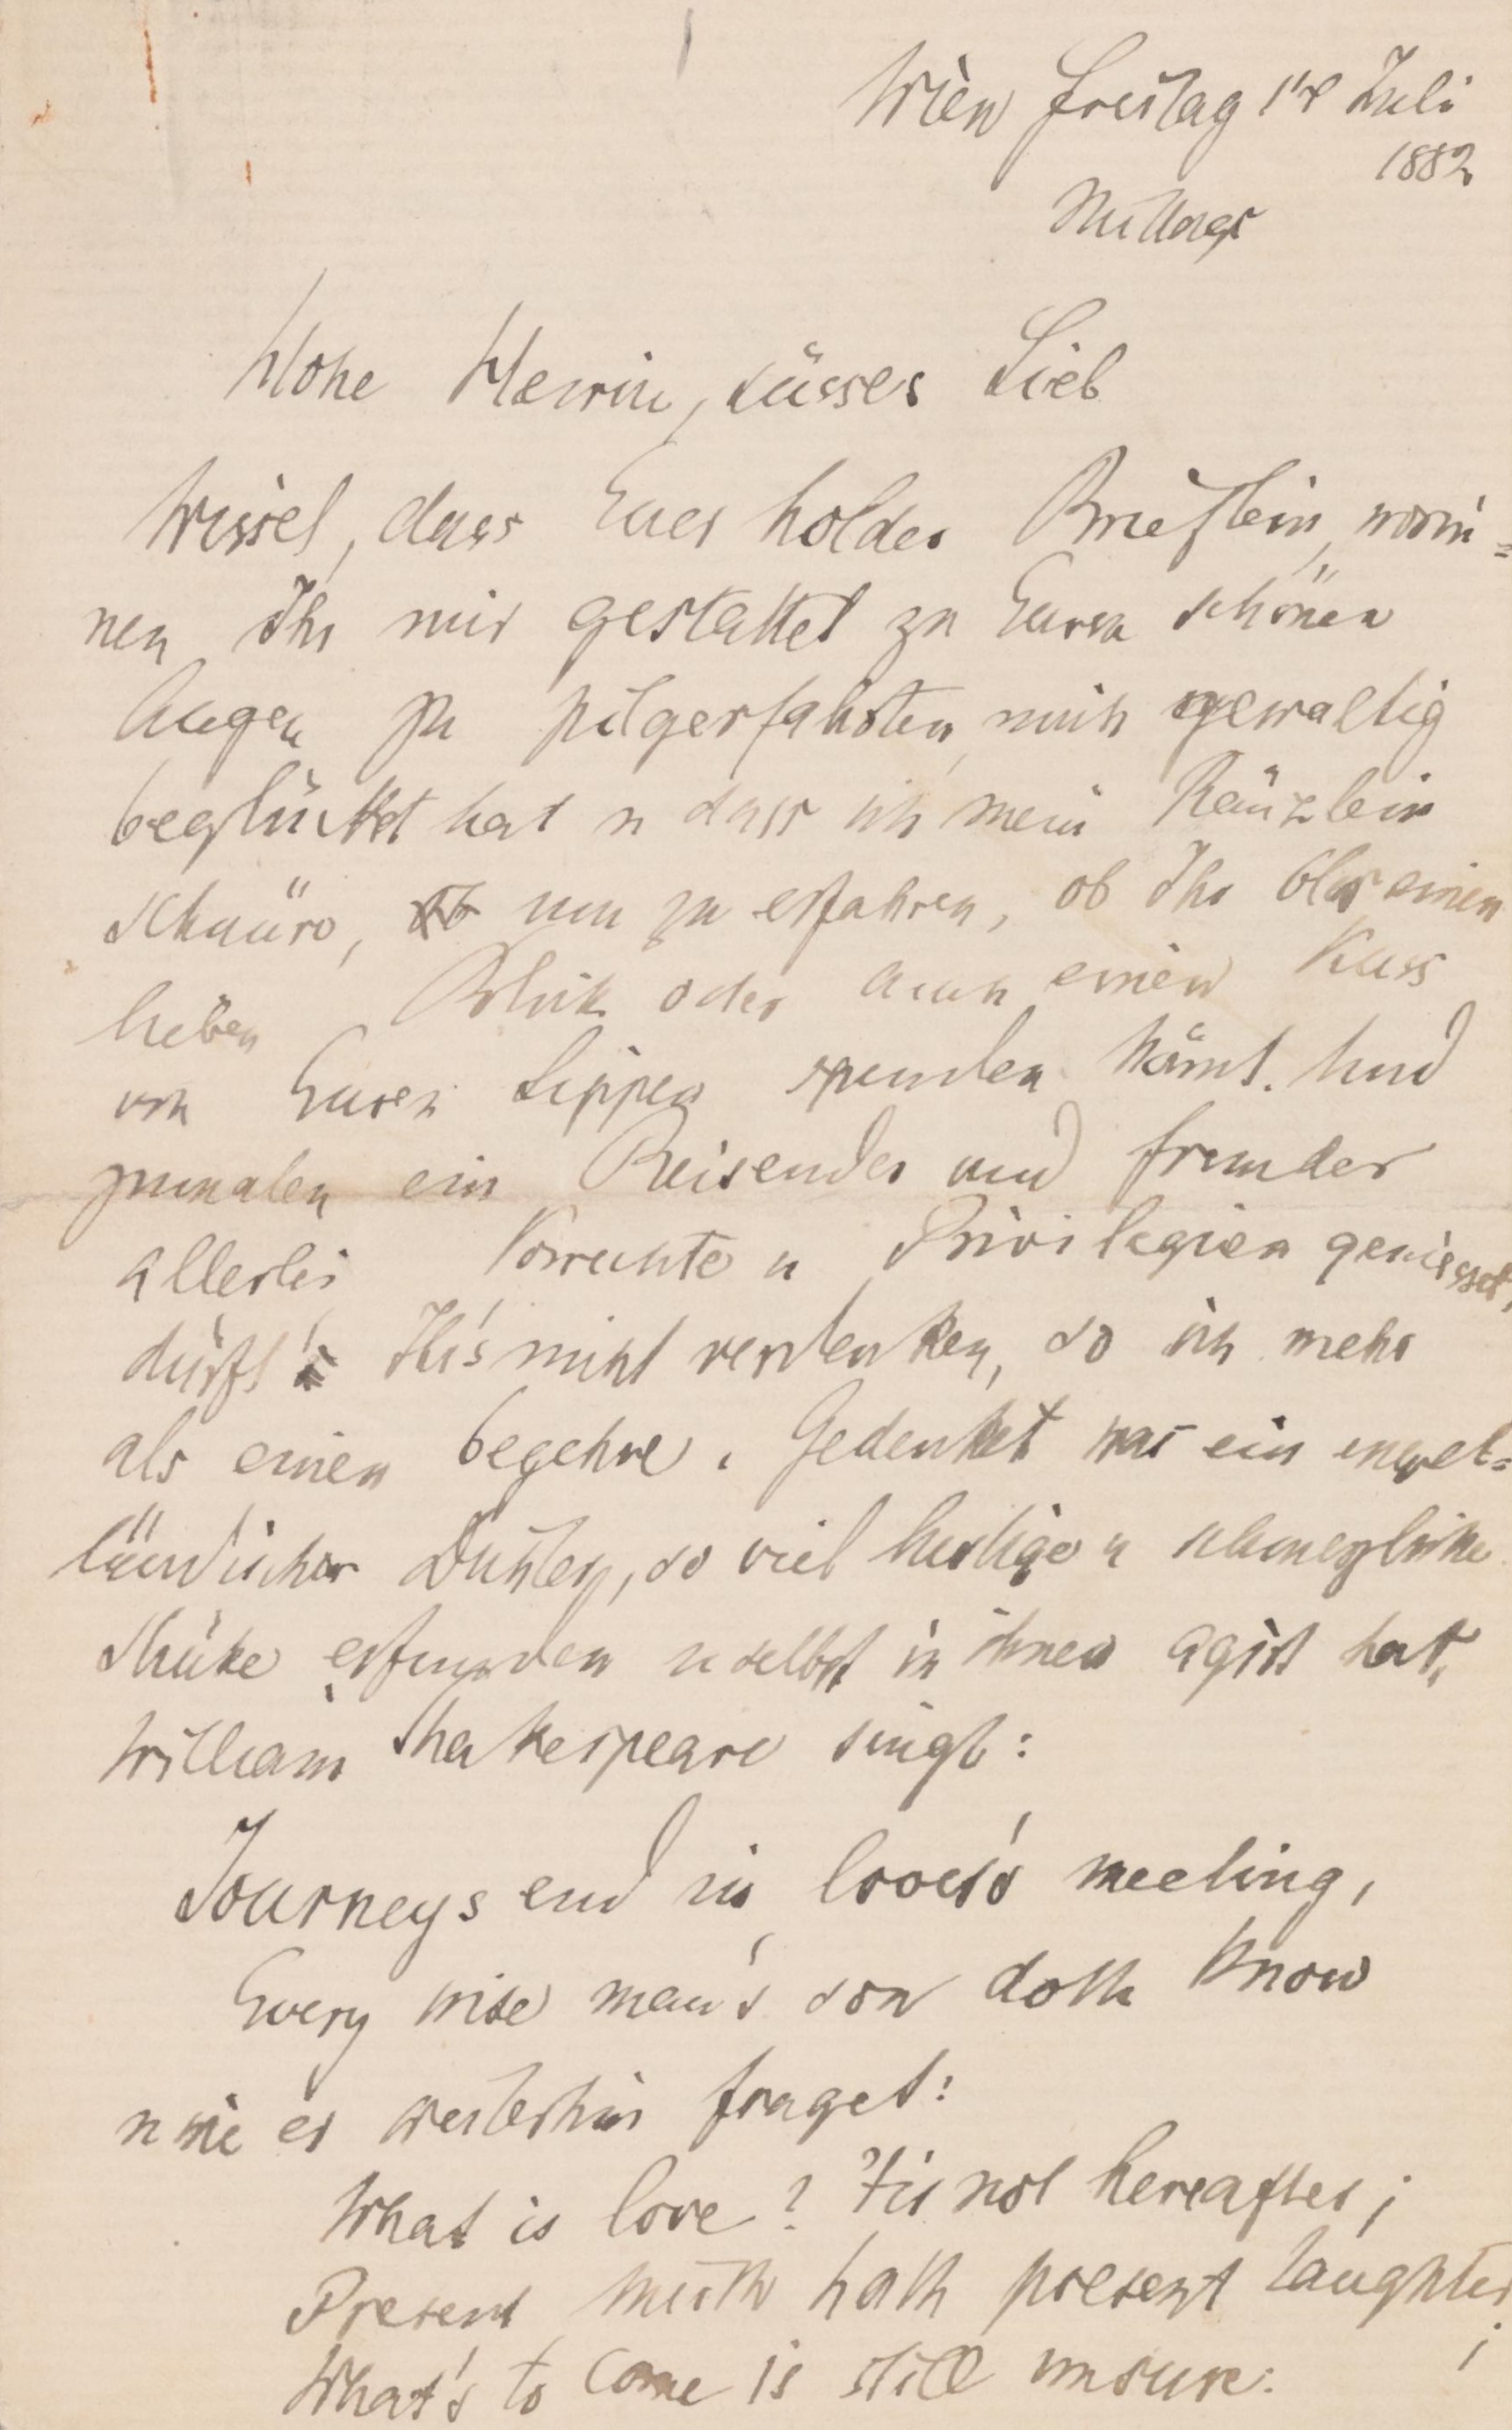 Wien Freitag 14 Juli
1882
Mittags
Hohe Herrin, süsses Lieb
Wisset, dass Euer holdes Brieflein, worin=
nen Ihr mir gestattet zu Euren schönen
Augen zu pilgerfahrten, mich gewaltig
beglücket hat u dass ich mein Ränzlein
schnüre, um zu erfahren, ob Ihr blos einen
lieben Blick oder auch einen Kuss
von Euren Lippen spenden könnt. Und
zumalen ein Reisender und Fremder
allerlei Vorrechte u Privilegien geniesset,
dürft Ihr's nicht verdenken, so ich mehr
als einen begehre. Gedenket was ein engel=
ländischer Dichter, so viel lustige u schmerzliche
Stücke erfunden u selbst in ihnen agirt hat,
William Shakespeare singt:
Journeys end in lover's meeting,
Every wise man's son doth know
u wie er weiterhin fraget:
What is love? 'tis not hereafter;
Present mirth hath present laughter
;
What's to come is still unsure: